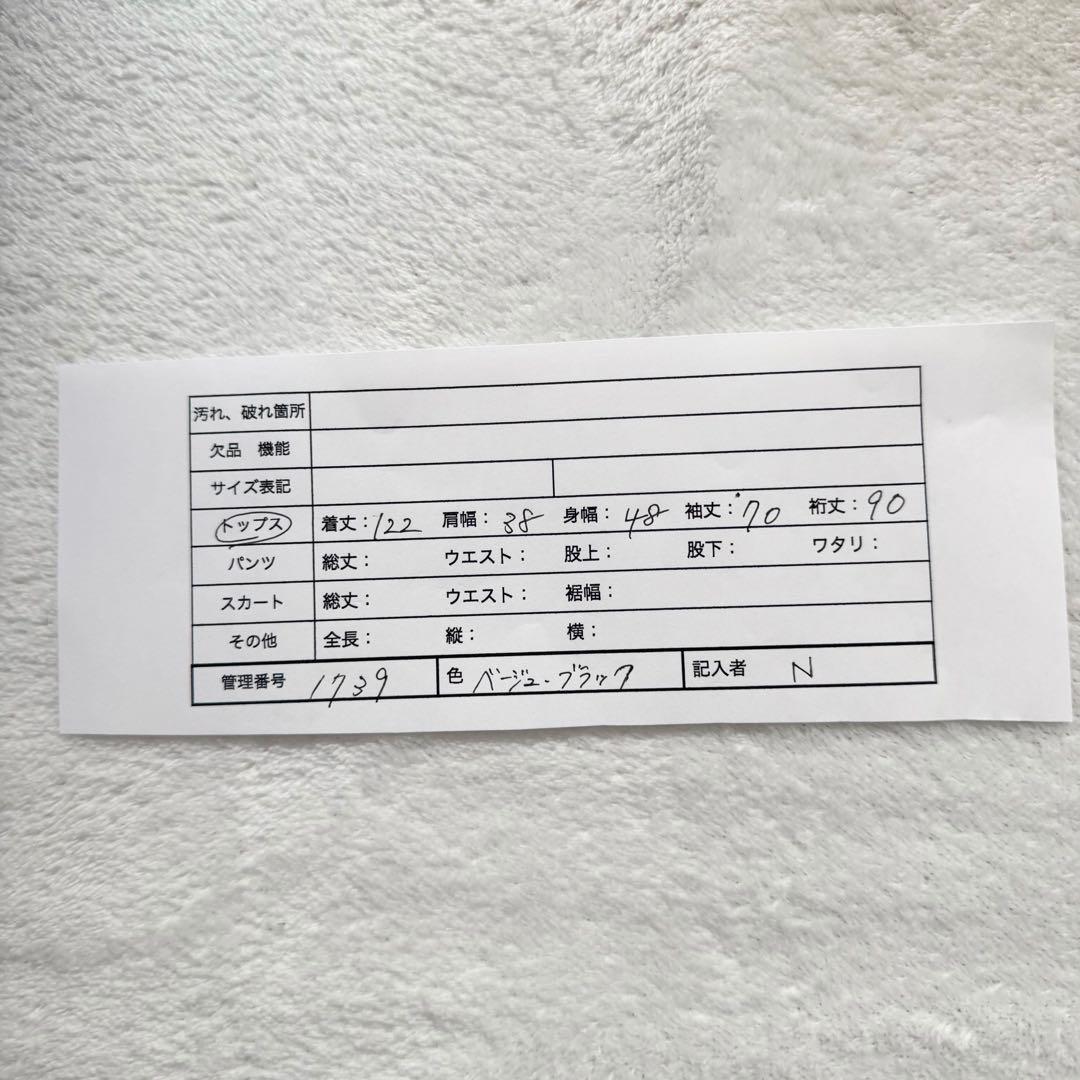 汚れ、破れ箇所
欠品 機能
サイズ表記
トップス 着丈：122 肩幅：38 身幅：48 袖丈：70 裄丈：90
パンツ 総丈： ウエスト： 股上： 股下： ワタリ：
スカート 総丈： ウエスト： 裾幅：
その他 全長： 縦： 横：
管理番号 1739 色 ベージュ・ブラック 記入者 N